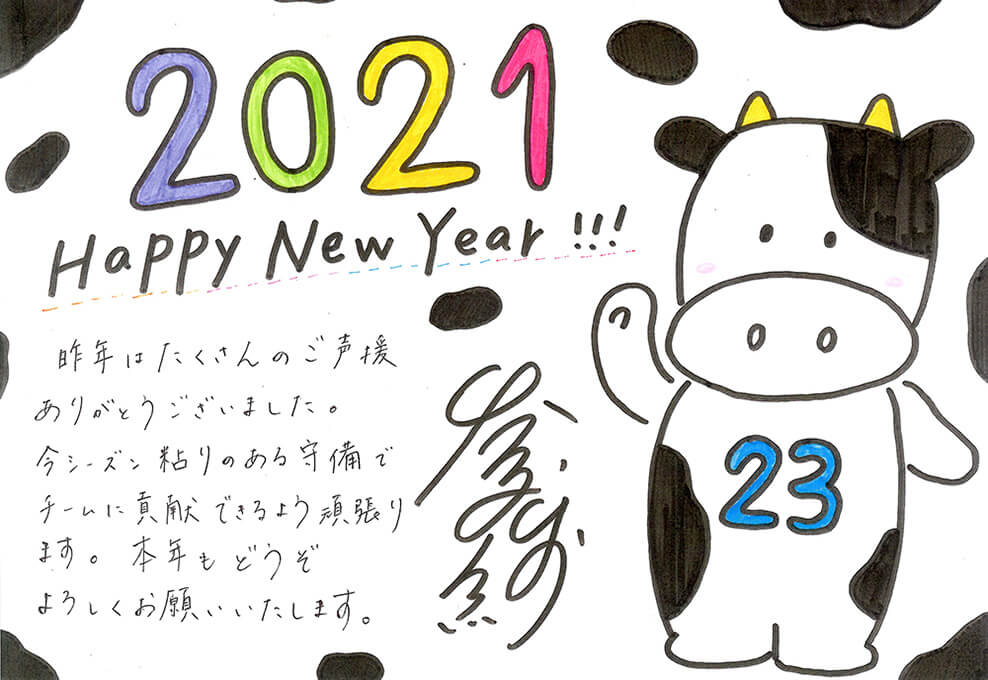 2021
Happy New Year!!!
昨年はたくさんのご声援
ありがとうございました。
今シーズン粘りのある守備で
チームに貢献できるよう頑張り
ます。本年もどうぞ
よろしくお願いいたします。
23